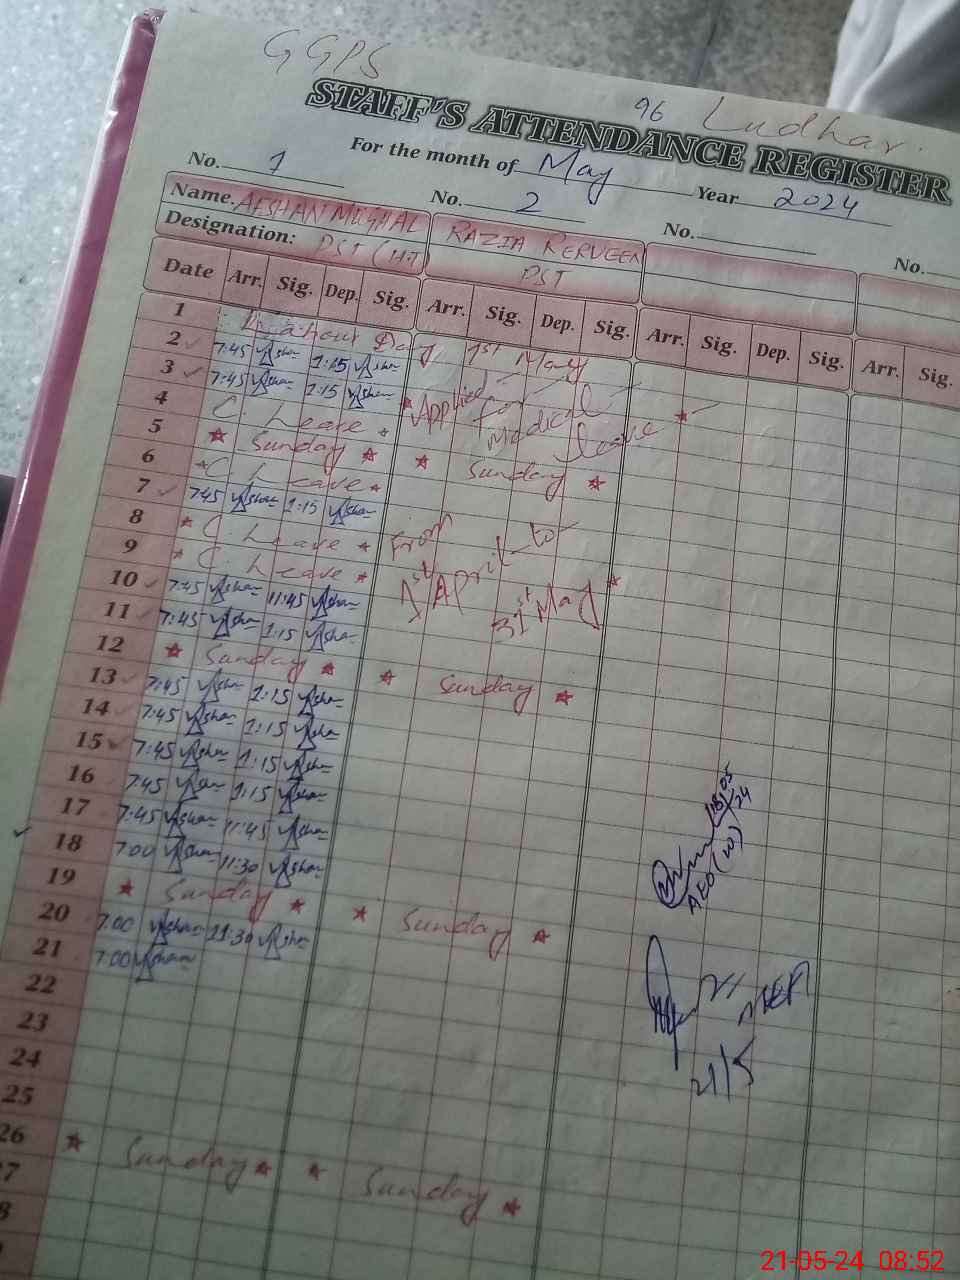 GGPS
96 Ludhar.
STAFF'S ATTENDANCE REGISTER
For the month of May Year 2024
No. 1 No. 2 No. No.
Name. AFSHAN MUGHAL RAZIA PERVEEN
Designation: PST (HT) PST
Date Arr. Sig. Dep. Sig. Arr. Sig. Dep. Sig. Arr. Sig. Dep. Sig. Arr. Sig.
1 Labour Day 1st May
2 7:45 Afshan 1:15 Afshan
3 7:45 Afshan 1:15 Afshan Applied for Medical leave
4 C. Leave
5 Sunday Sunday
6 C. Leave
7 7:45 Afshan 1:15 Afshan
8 C. Leave From 1st April to 31st May
9 C. Leave
10 7:45 Afshan 11:45 Afshan
11 7:45 Afshan 1:15 Afshan
12 Sunday Sunday
13 7:45 Afshan 1:15 Afshan
14 7:45 Afshan 1:15 Afshan
15 7:45 Afshan 1:15 Afshan
16 7:45 Afshan 1:15 Afshan
17 7:45 Afshan 11:45 Afshan
18 7:00 Afshan 11:30 Afshan
18/05/24
AEO (W)
19 Sunday Sunday
20 7:00 Afshan 11:30 Afshan
21 7:00 Afshan
22
23
21/5
24
25
26 Sunday Sunday
7
8
21-05-24 08:52